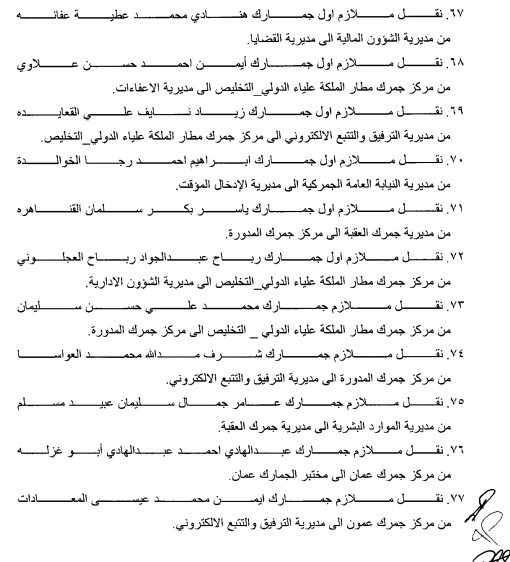 ٦٧. نقل ملازم اول جمارك هنادي محمد عطية عفانه
من مديرية الشؤون المالية الى مديرية القضايا.
٦٨. نقل ملازم اول جمارك أيمن احمد حسن علاوي
من مركز جمرك مطار الملكة علياء الدولي_التخليص الى مديرية الاعفاءات.
٦٩. نقل ملازم اول جمارك زياد نايف علي القعايده
من مديرية الترفيق والتتبع الالكتروني الى مركز جمرك مطار الملكة علياء الدولي_التخليص.
٧٠. نقل ملازم اول جمارك ابراهيم احمد رجا الخوالدة
من مديرية النيابة العامة الجمركية الى مديرية الإدخال المؤقت.
٧١. نقل ملازم اول جمارك ياسر بكر سلمان القناهره
من مديرية جمرك العقبة الى مركز جمرك المدورة.
٧٢. نقل ملازم اول جمارك رباح عبدالجواد رباح العجلوني
من مركز جمرك مطار الملكة علياء الدولي_التخليص الى مديرية الشؤون الادارية.
٧٣. نقل ملازم جمارك محمد علي حسن سليمان
من مركز جمرك مطار الملكة علياء الدولي _ التخليص الى مركز جمرك المدورة.
٧٤. نقل ملازم جمارك شرف مدالله محمد العواسا
من مركز جمرك المدورة الى مديرية الترفيق والتتبع الالكتروني.
٧٥. نقل ملازم جمارك عامر جمال سليمان عبيد مسلم
من مديرية الموارد البشرية الى مديرية جمرك العقبة.
٧٦. نقل ملازم جمارك عبدالهادي احمد عبدالهادي أبو غزله
من مركز جمرك عمان الى مختبر الجمارك عمان.
٧٧. نقل ملازم جمارك ايمن محمد عيسى المعادات
من مركز جمرك عمون الى مديرية الترفيق والتتبع الالكتروني.